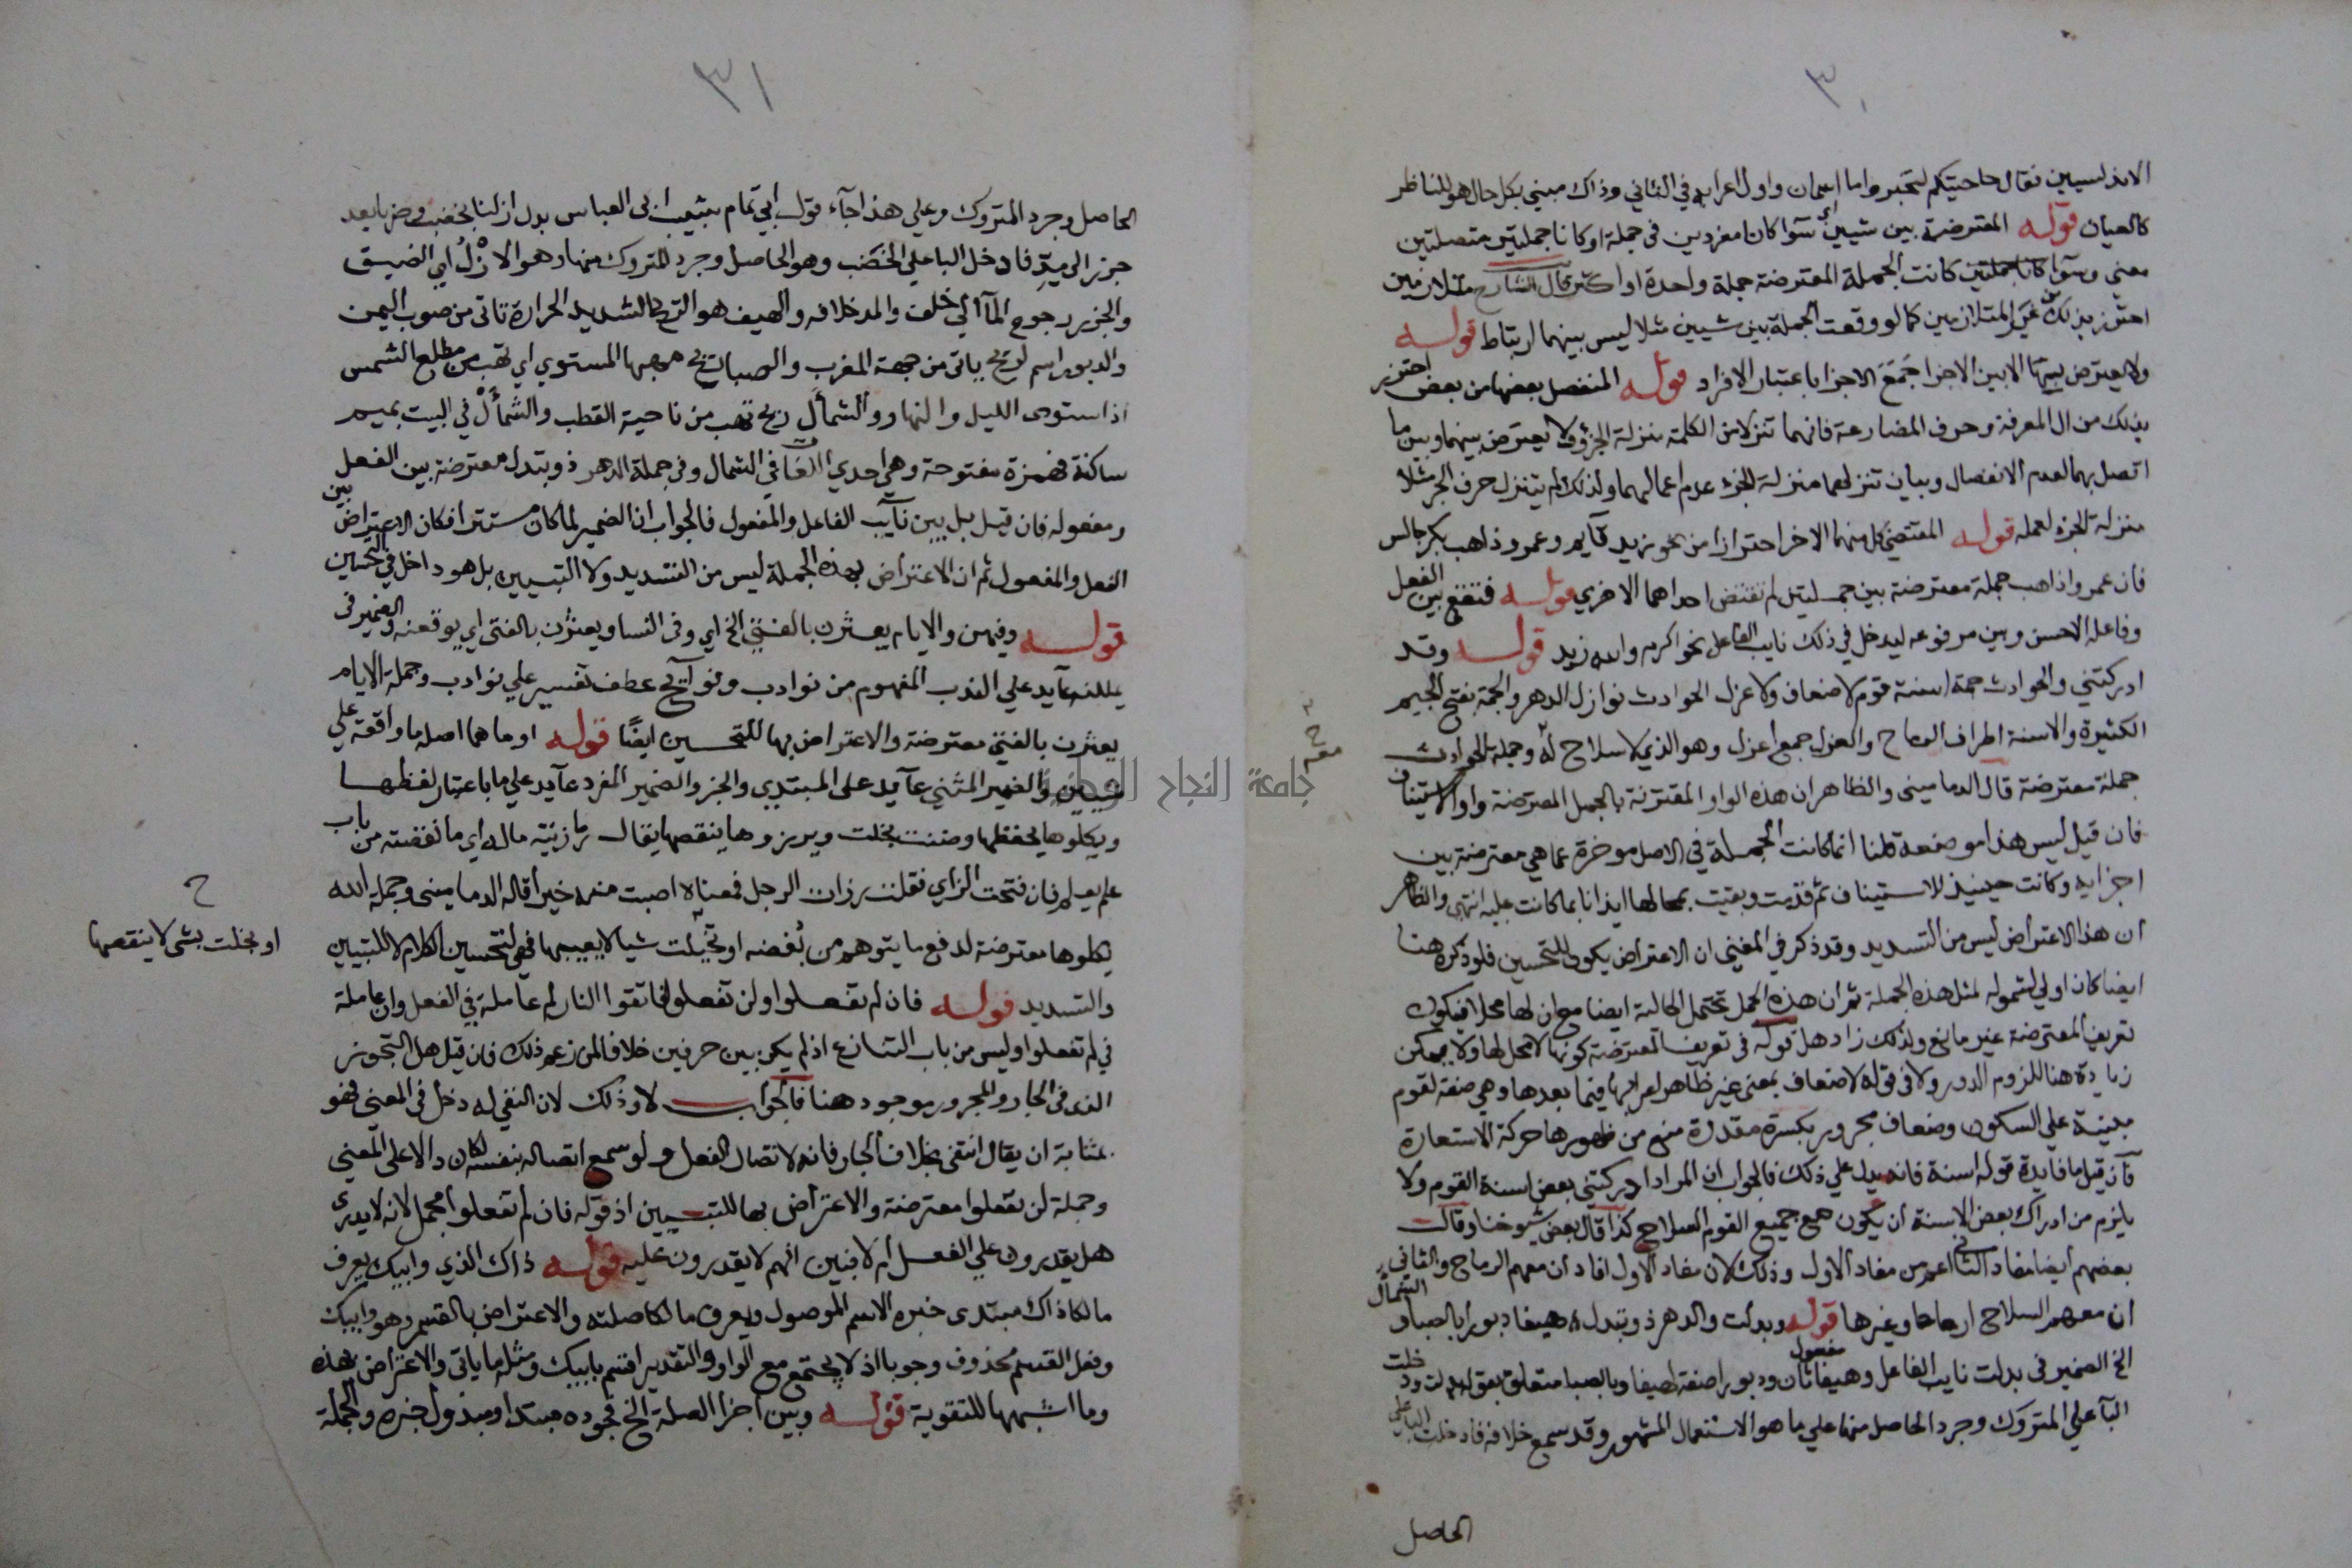 ٣٠
الاندلسيين فقال حاحيتكم لتخبروا ما اسمان واول اعرابه في الثاني وذاك مبني بكل حال هو للناظر
كالعيان قوله المعترضة بين شيين اي سوا كانا مفردين في جملة او كانا جملتين متصلتين
معني وسوا كانا جملتين كانت الجملة المعترضة جملة واحدة او اكثر قال الشارح متلازمين
احترز بذلك عن غير المتلازمين كما لو وقعت الجملة بين شيين مثلا ليس بينهما ارتباط قوله
ولا يعترض بها الا بين الاجزا جمع الاجزا باعتبار الافراد قوله المنفصل بعضها من بعض احترز
بذلك من ال المعرفة وحرف المضارعة فانهما تنزلا من الكلمة منزلة الجزؤ ولا يعترض بينهما وبين ما
اتصل بهما لعدم الانفصال وبيان تنزلهما منزلة الجزء عدم اعمالهما ولذلك لم يتنزل حرف الجر مثلا
منزلة الجزء لعمله قوله المقتضي كل منهما الاخر احترازا من نحو زيد قايم وعمرو ذاهب بكر جالس
فان عمرو اذاهب جملة معترضة بين جملتين لم تقتض احداهما الاخري قوله فتقع بين الفعل
وفاعله الاحسن وبين مرفوعه ليدخل في ذلك نايب الفاعل نحو اكرم والله زيد قوله وقد
ادركتني والحوادث جمة اسنة قوم لا ضعاف ولا عزل الحوادث نوازل الدهر والجمة بفتح الجيم
الكثيرة والاسنة اطراف الرماح والعزل جمع اعزل وهو الذي لا سلاح له وجملة الحوادث
جملة معترضة قال الدماميني والظاهر ان هذه الواو المقترنة بالجمل المعترضة واو الاستيناف
فان قيل ليس هذا موضعه قلنا انما كانت الجملة في الاصل موخرة عما هي معترضة بين
اجزايه وكانت حينيذ للاستيناف ثم قدمت وبقيت بحالها ايذانا بما كانت عليه انتهي والظاهر
ان هذا الاعتراض ليس من التسديد وقد ذكر في المغني ان الاعتراض يكون للتحسين فلو ذكره هنا
ايضا كان اولي لشموله لمثل هذه الجملة ثم ان هذه الجمل تحتمل الحالية ايضا مع ان لها محلا فيكون
تعريف المعترضة غير مانع ولذلك زاد هل قوله في تعريف المعترضة كونها لا محل لها ولا يمكن
زيادة هنا للزوم الدور ولا في قوله لا ضعاف بمعني غير ظاهر اعرابها فيما بعدها وهي صفة لقوم
مبنية علي السكون وضعاف مجرور بكسرة مقدرة منع من ظهورها حركة الاستعارة
فان قيل ما فايدة قوله اسنة فانه يدل علي ذلك فالجواب ان المراد ادركتني بعض اسنة القوم ولا
يلزم من ادراك بعض الاسنة ان يكون مع جميع القوم السلاح كذا قال بعض شيوخنا وقال
بعضهم ايضا مفاد الثاني اعم من مفاد الاول وذلك لان مفاد الاول افاد ان معهم الرماح والثاني
ان معهم السلاح ارماحا وغيرها قوله وبدلت والدهر ذو تبدل هيفا دبورا بالصبا والشمأل
الخ الضمير في بدلت نايب الفاعل وهيفا مفعول ثان ودبورا صفة لهيفا وبالصبا متعلق بقوله بدلت ودخلت
البآ علي المتروك وجرد الحاصل منها علي ما هو الاستعمال المشهور وقد سمع خلافه فادخلت البا علي
الحاصل
٣١
الحاصل وجرد المتروك وعلي هذا جآء قول ابي تمام بشيب ابي العباس بدل ازلنا بخفض وصرنا بعد
جزر الي مد فادخل البا علي الخفض وهو الحاصل وجرد المتروك منهما وهو الازل اي الضيق
والجزر رجوع المآ الي خلف والمد خلافه والهيف هو الريح الشديد الحرارة تاتي من صوب اليمن
والدبور اسم لريح ياتي من جهة المغرب والصبا ريح مهبها المستوي اي تهب من مطلع الشمس
اذا استوي الليل والنهار والشمأل ريح تهب من ناحية القطب والشمأل في البيت بميم
ساكنة فهمزة مفتوحة وهي احدي اللغات في الشمال وفي جملة الدهر ذو تبدل معترضة بين الفعل
ومفعوله فان قيل بل بين نآيب الفاعل والمفعول فالجواب ان الضمير لما كان مستترا فكان الاعتراض بين
الفعل والمفعول ثم ان الاعتراض بهذه الجملة ليس من التسديد ولا التبيين بل هو داخل في التحسين
قوله وفيهن والايام يعثرن بالفتي الخ اي وفي النسا ويعثرن بالفتي اي يوقعنه والضمير في
يمللنه عآيد علي الندب المفهوم من نوادب ونوآيح عطف تفسير علي نوادب وجملة الايام
يعثرن بالفتي معترضة والاعتراض بها للتحسين ايضًا قوله او ما هما اصله ما واقعة علي
شيين والضمير المثني عآيد علي المبتدي والخبر والضمير المفرد عآيد علي ما باعتبار لفظها
ويكلوها يحفظها وضنت بخلت ويرزوها ينقصها يقال ما رزيته ماله اي ما نقصته من باب
علم يعلم فان فتحت الزاي فقلت رزات الرجل فمعناه اصبت منه خيرا قاله الدماميني وجملة الله
يكلوها معترضة لدفع ما يتوهم من بُغضه او تخيلت شيا لا يعيبها فهي لتحسين الكلام لا للتبيين
والتسديد قوله فان لم تفعلوا ولن تفعلوا فاتقوا النار لم عاملة في الفعل وان عاملة
في لم تفعلوا وليس من باب التنازع اذ لم يكن بين حرفين خلافا لمن زعم ذلك فان قيل هل التجوز
الذي في الجار والمجرور موجود هنا فالجواب لا وذلك لان النفي له دخل في المعني فهو
بمثابة ان يقال انتفي بخلاف الجار فانه لاتصال الفعل ولو سمع اتصاله بنفسه لكان دالا علي المعني
وجملة لن تفعلوا معترضة والاعتراض بها للتبيين اذ قوله فان لم تفعلوا مجمل لانه لا يدري
هل يقدرون علي الفعل ام لا فبين انهم لا يقدرون عليه قوله ذاك الذي وابيك يعرف
مالكا ذاك مبتدي خبره الاسم الموصول ويعرف مالكا صلته والاعتراض بالقسم وهو وابيك
وفعل القسم محذوف وجوبا اذ لا يجتمع مع الواو والتقدير اقسم بابيك ومثله ما ياتي والاعتراض بهذه
وما اشبهها للتقوية قوله وبين اجزا الصلة الخ فجوده مبتدا ومبذول خبره والجملة
ح
او بخلت بشي لا ينقصها
جامعة النجاح الوطنية